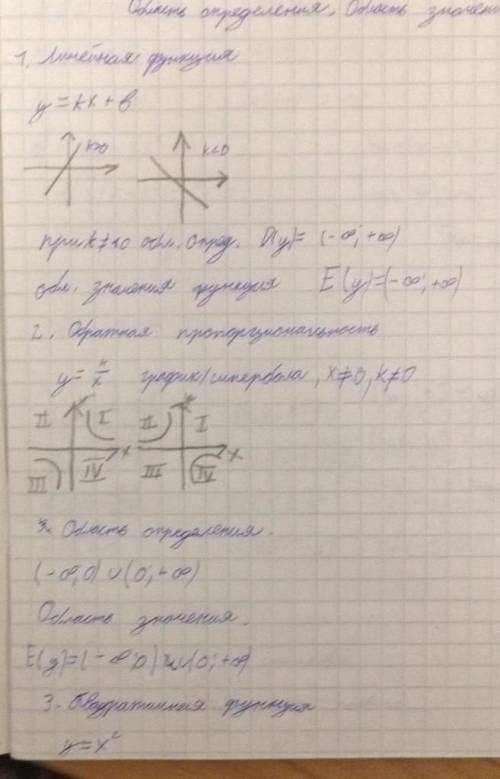 Область определения, Область значени
1. Линейная функция
y = kx + b
k>0 k<0
при k≠0 обл. опред. D(y)= (-∞; +∞)
обл. значения функция E(y)=(-∞; +∞)
2. Обратная пропорциональность
y = k/x график гипербола, x≠0, k≠0
II I II I
x x
III IV III IV
3. Область определения.
(-∞; 0) ∪ (0; +∞)
Область значения.
E(y)=(-∞; 0) ∪ (0; +∞)
3. Квадратичная функция
y = x²